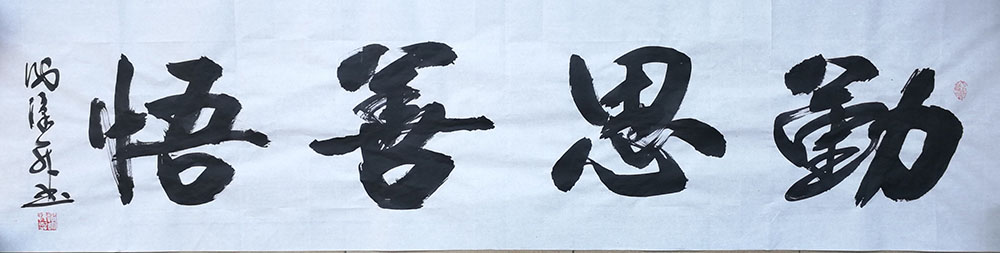 勤思善悟